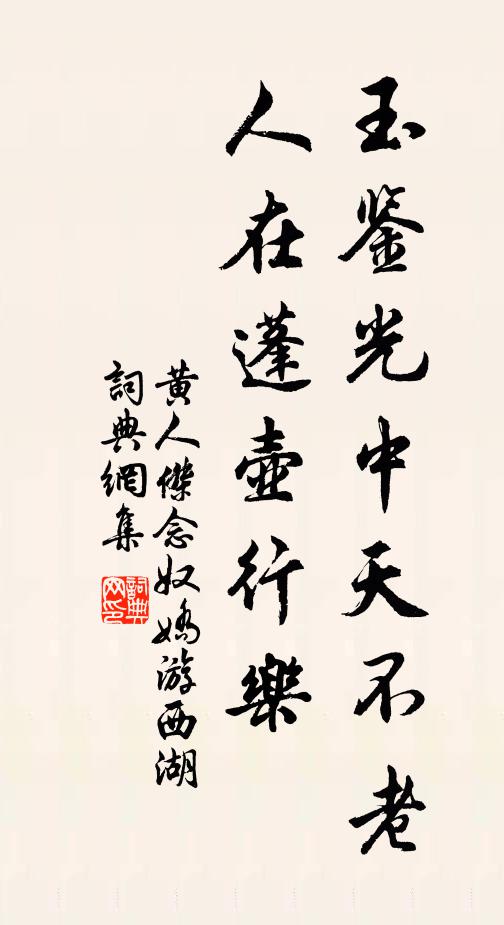 玉鉴光中天不老
人在蓬壺行樂
黄人傑念奴嬌游西湖
詞典網集
詞典网印